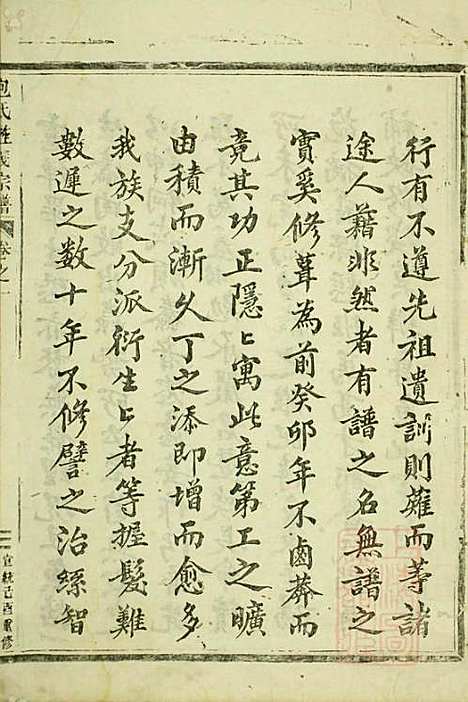 行有不遵先祖遺訓則薙而等諸
途人藉非然者有譜之名無譜之
實奚修葺為前癸卯年不鹵莽而
竟其功正隱㠯寓此意第工之曠
由積而漸久丁之添即增而愈多
我族支分派衍生㠯者等握髮難
數遲之數十年不修譬之治絲智
包氏 宗譜 卷之一
宣統己酉重修